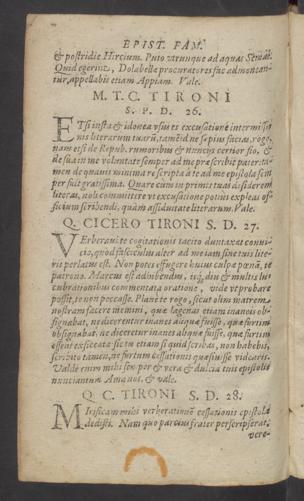 EPIST. FAM.
& postridie Hircium. Puto utrunque ad aquas
Quid egerint, Dolabellæ procuratores fac admonean-
tur, appellabis etiam Appiam. Vale.
M. T. C. TIRONI
S. P. D. 26.
ETsi iusta & idonea usus es excusatione intermissio-
nis literarum tuarū, tamē id ne sæpius facias, rogo,
nam etsi de Repub. rumoribus & nunciis certior fio, &
de sua in me voluntate semper ad me præscribit pater: ta-
men de quavis minima re scripta à te ad me epistola sem
per fuit gratissima. Quare cum in primis tuas desiderem
literas, noli committere ut excusatione potius expleas of-
ficium scribendi, quàm assiduitate literarum. Vale.
Q. CICERO TIRONI S. D. 27.
VErberavi te cogitationis tacito duntaxat convi-
cio, quòd fasciculus alter ad me iam sine tuis lite-
ris perlatus est. Non potes effugere huius culpæ pœnā, te
patrono. Marcus est adhibendus, isque diu & multis lu-
cubrationibus commentata oratione, vide ut probare
possit, te non peccasse. Planè te rogo, sicut olim matrem
nostram facere memini, quæ lagenas etiam inaneis ob-
signabat, ne dicerentur inanes aliquæ fuisse, quæ furtim
essent exsiccatæ: sic tu etiam si quid scribas, non habebis,
scribito tamen, ne furtum cessationis quæsivisse videaris.
Valde enim mihi semper & vera & dulcia tuis epistolis
nunciantur. Ama nos, & vale.
Q. C. TIRONI S. D. 28.
MIrificam mihi verberationē cessationis epistola
dedisti. Nam quæ parcius frater perscripserat,
vere-